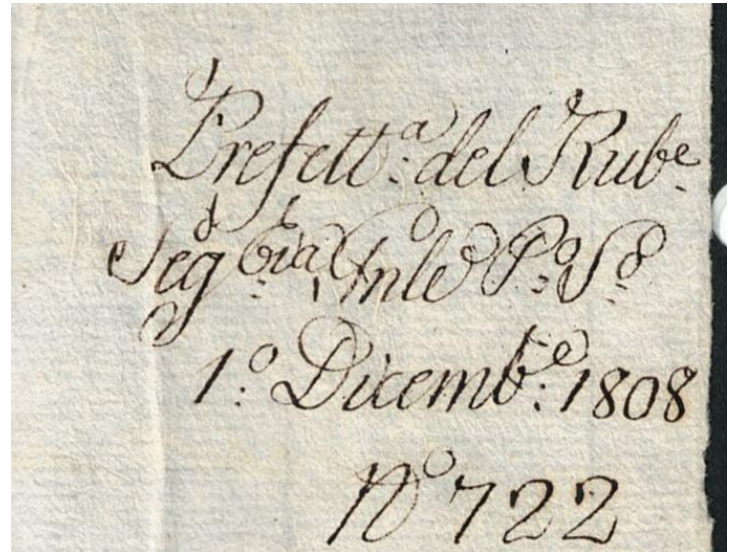 Prefett.a del Rub.e
Seg.ria Gnle P.o S.o
1.o Dicemb.e 1808
No 722